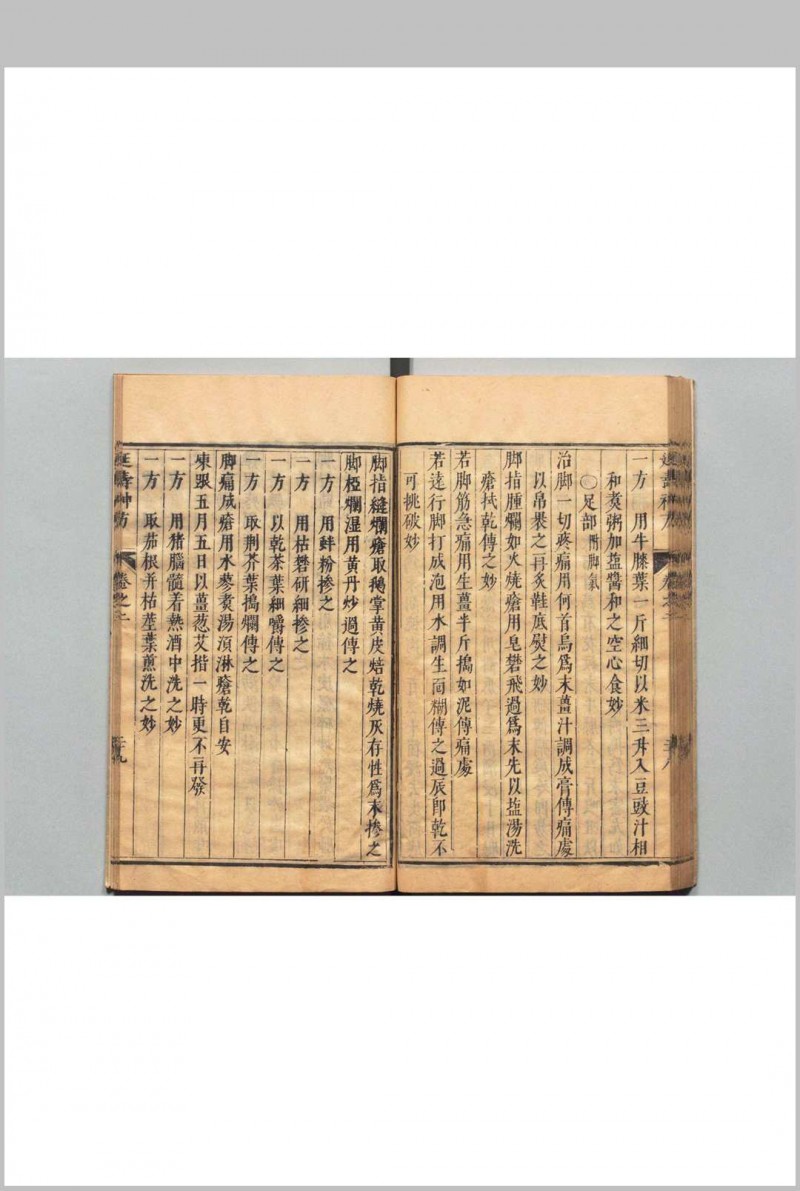 一方　用牛膝葉一斤細切以米三升入豆豉汁相
和煑粥加塩醬和之空心食妙
〇足部附脚氣
治脚一切疼痛用何首烏爲末薑汁調成膏傅痛處
以帛裹之再炙鞋底熨之妙
脚指腫爛如火燒瘡用皂礬飛過爲末先以塩湯洗
瘡拭乾傅之妙
若脚筋急痛用生薑半斤搗如泥傅痛處
若遠行脚打成泡用水調生面糊傅之過辰卽乾不
可挑破妙
脚指縫爛瘡取鵝掌黃皮焙乾燒灰存性爲末摻之
脚椏爛湿用黃丹炒過傅之
一方　用蚌粉摻之
一方　用枯礬研細摻之
一方　以乾茶葉細嚼傅之
一方　取荆芥葉搗爛傅之
脚痛成瘡用水蓼煑湯湏淋瘡乾自安
凍跟五月五日以薑葱艾揩一時更不再發
一方　用猪腦髓着熱酒中洗之妙
一方　取茄根并枯莖葉煎洗之妙
卷之二
二十九